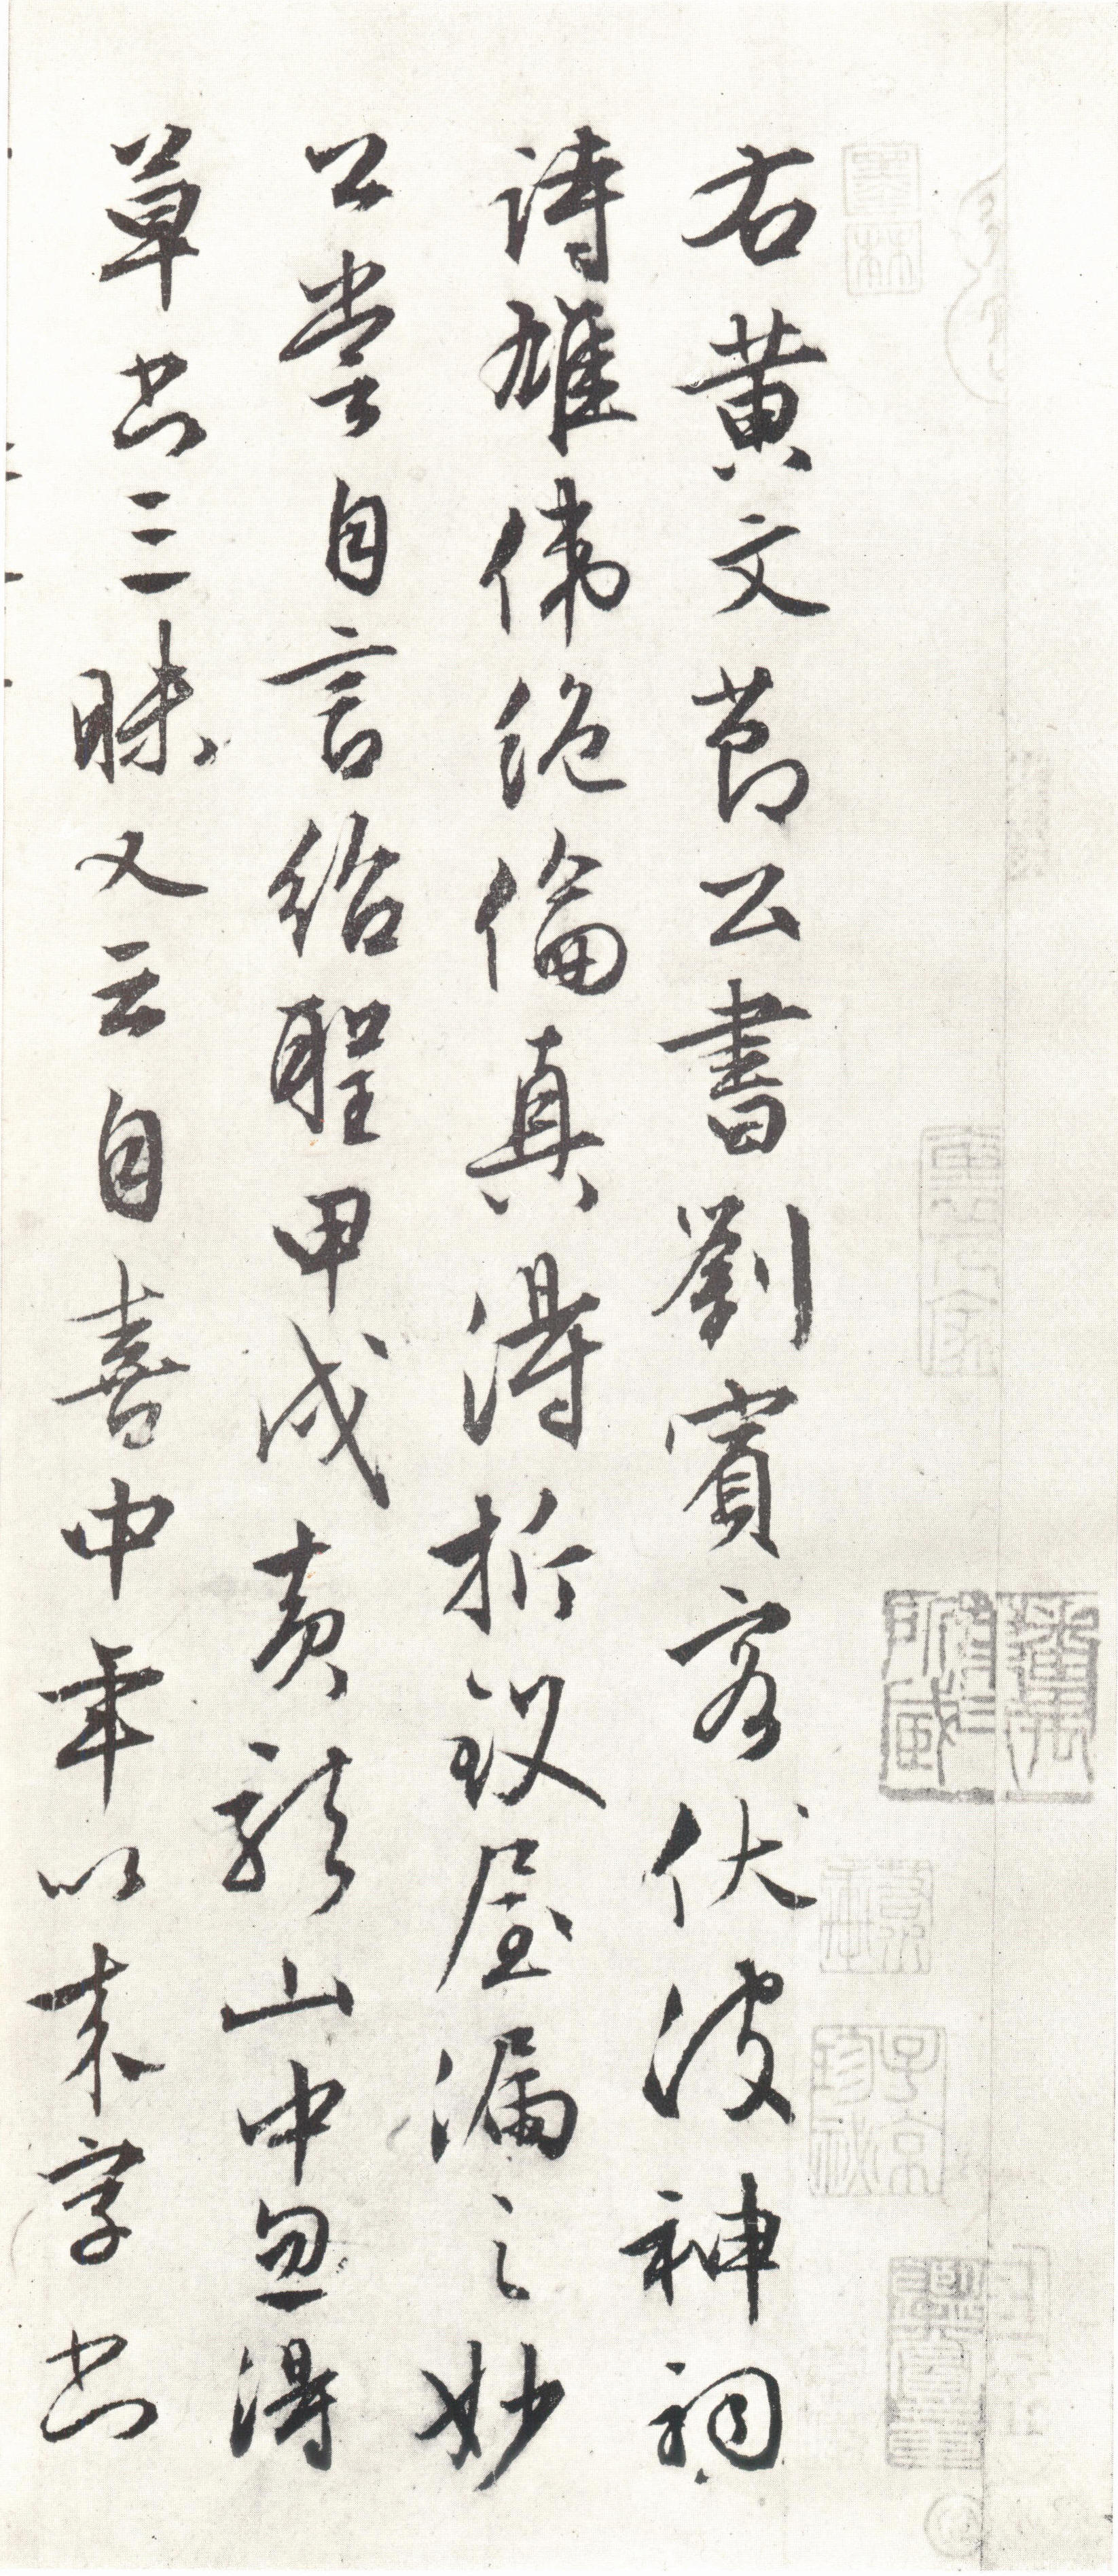 右黄文節公書劉賓客伏波神祠
詩雄偉絶倫真得折釵屋漏之妙
公嘗自言紹聖甲戌黄龍山中忽得
草書三昧又云自喜中年以来字書
子京
珍秘